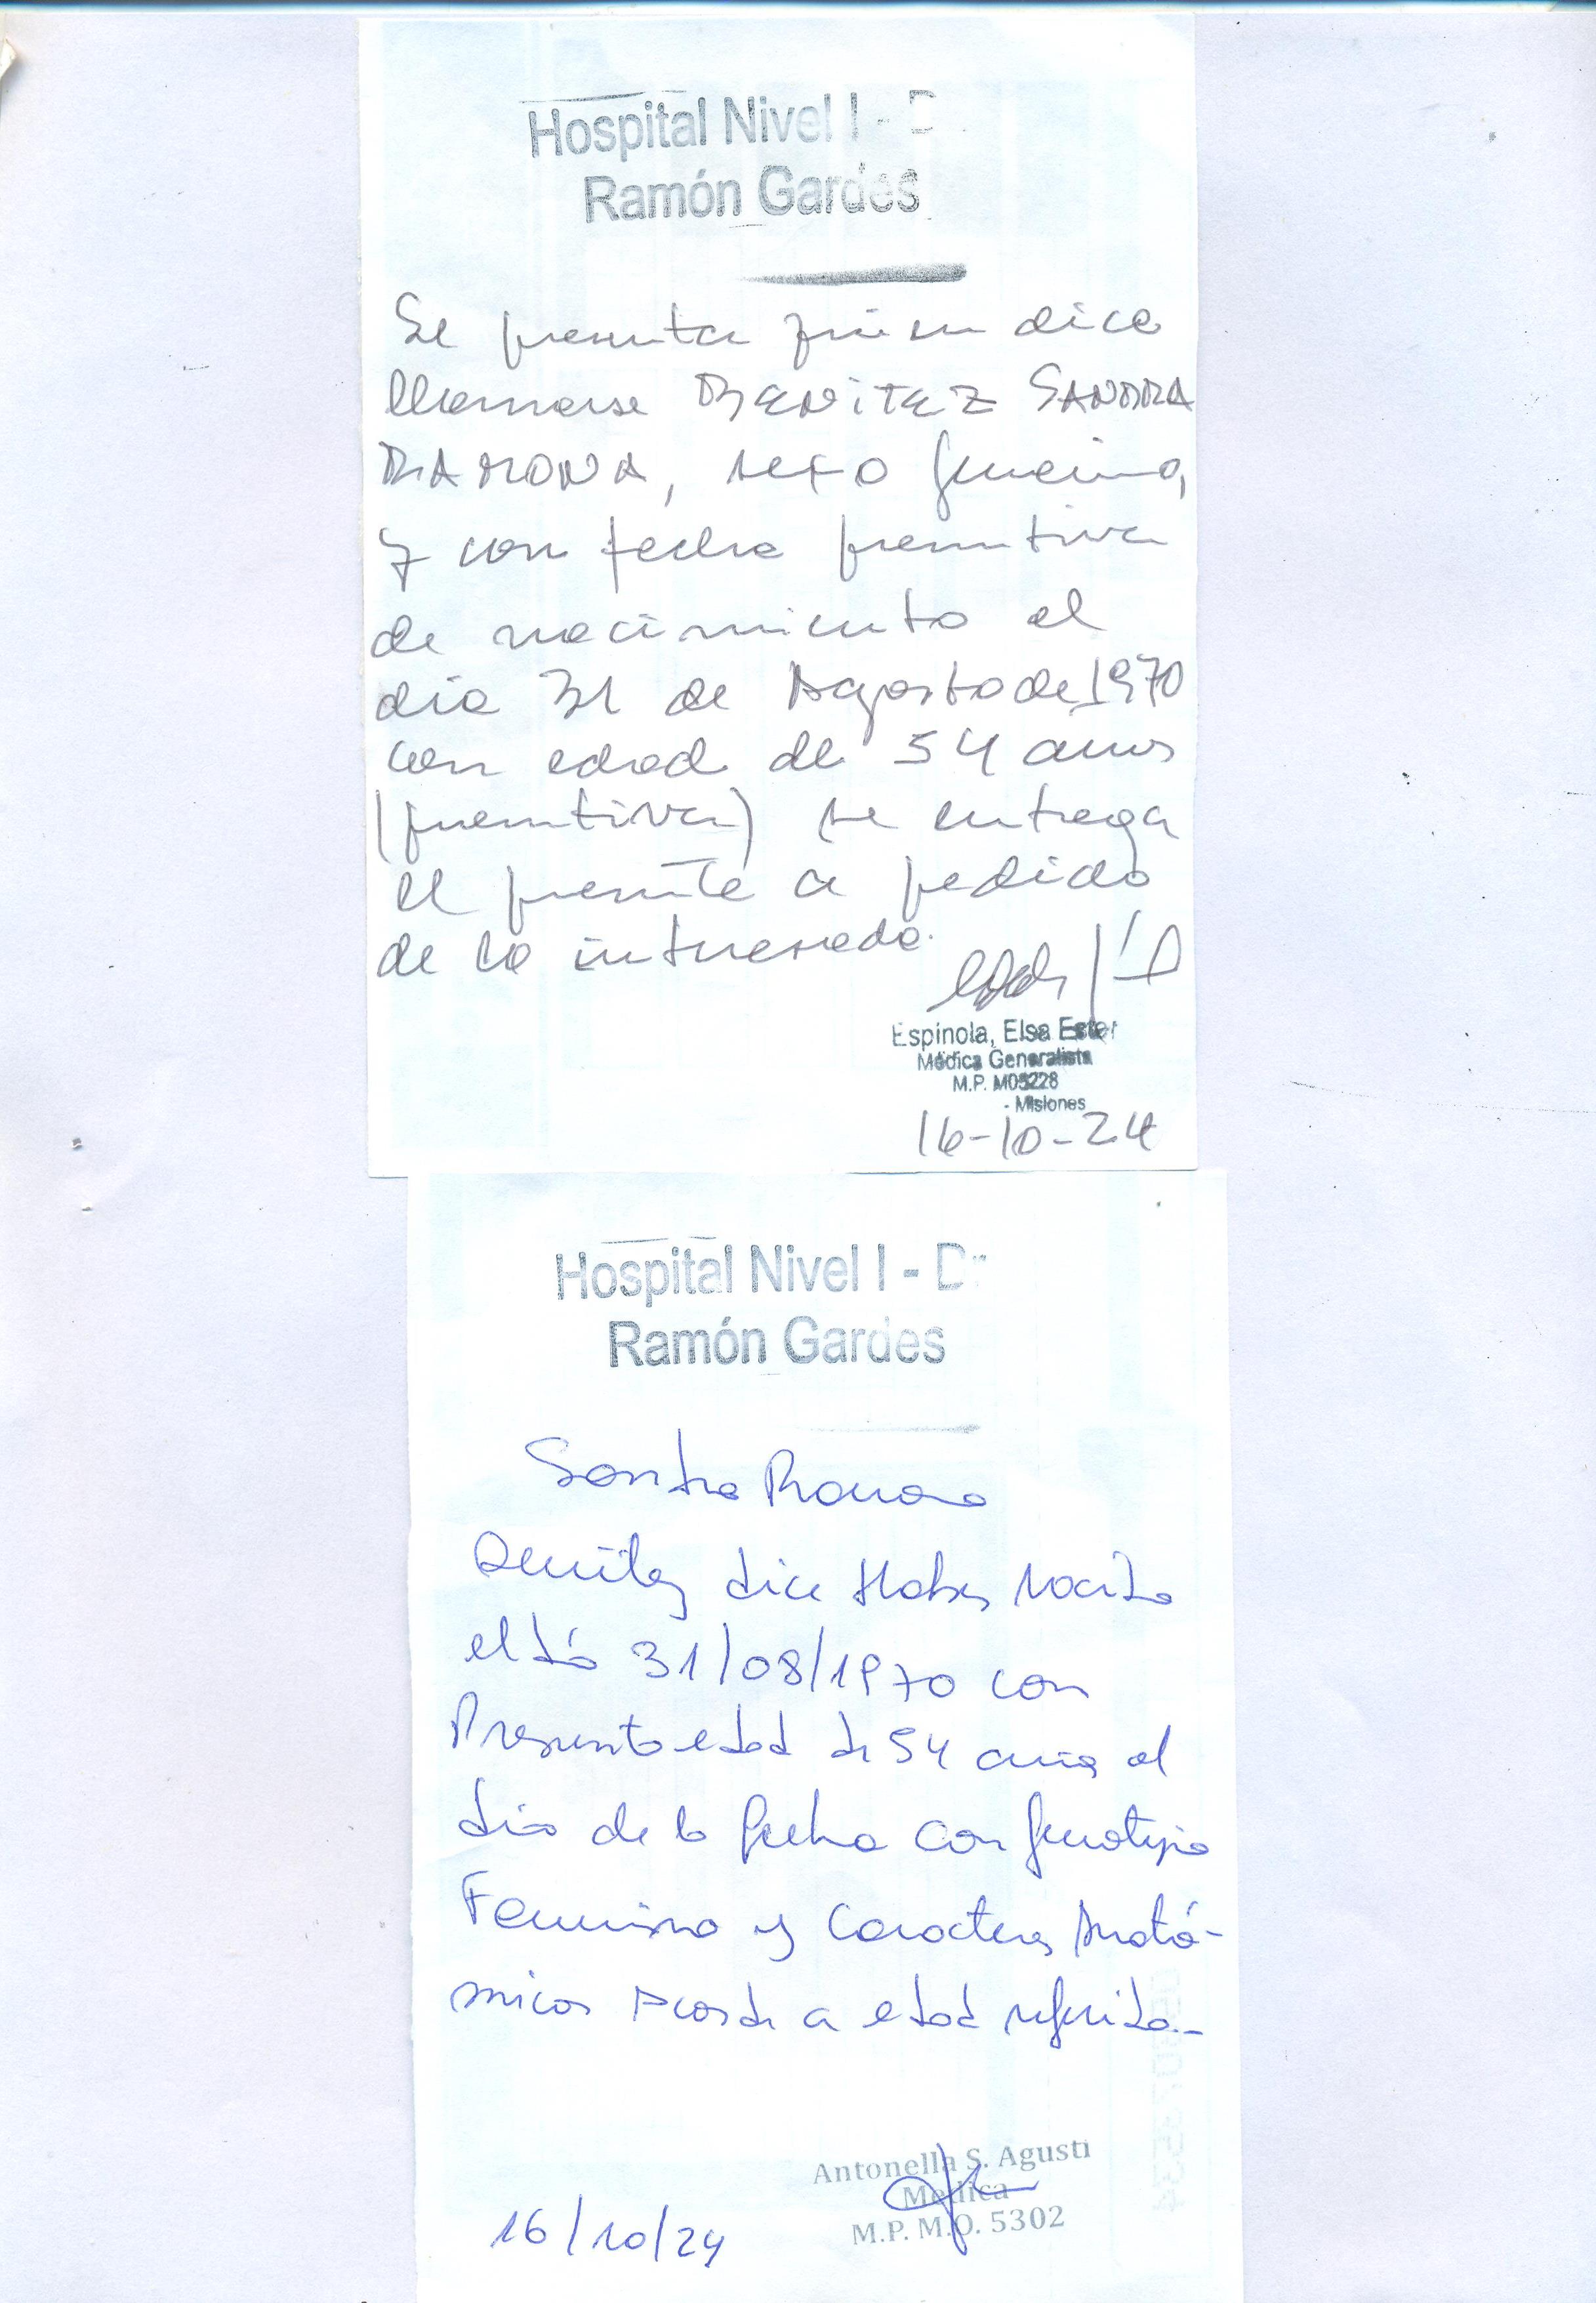 Hospital Nivel I - D
Ramón Gardes
Se presenta quien dice
llamarse BENITEZ SANDRA
RAMONA, sexo femenino,
y con fecha presuntiva
de nacimiento el
día 31 de Agosto de 1970
con edad de 54 años
(presuntiva) se entrega
el presente a pedido
de la interesada.
Espinola, Elsa Ester
Médica Generalista
M.P. M05228
- Misiones
16-10-24
Hospital Nivel I - Dr
Ramón Gardes
Sandra Ramona
Benitez dice Haber Nacido
el día 31/08/1970 con
Presunta edad de 54 años al
día de la fecha con fenotipo
Femenino y Caracteres Anató-
micos Acorde a edad referida.-
Antonella S. Agusti
Médica
M.P. M.O. 5302
16/10/24